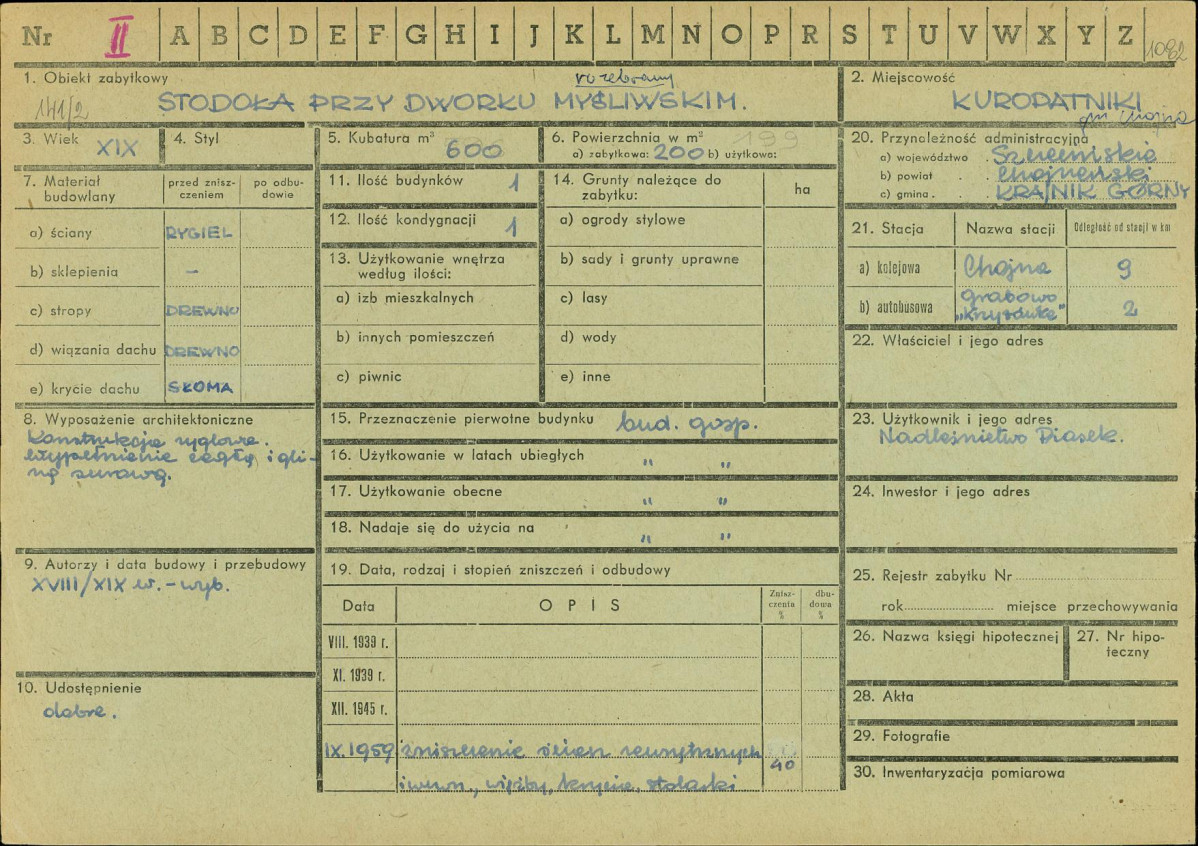 Nr II A B C D E F G H I J K L M N O P R S T U V W X Y Z 1082
1. Obiekt zabytkowy
rozebrany
141/2
STODOŁA PRZY DWORKU MYŚLIWSKIM.
2. Miejscowość
KUROPATNIKI
gm Chojna
3. Wiek XIX
4. Styl
5. Kubatura m³ 600
6. Powierzchnia w m² 99
a) zabytkowa: 200 b) użytkowa:
20. Przynależność administracyjna
a) województwo . Szczecińskie
b) powiat . . Chojneński
c) gmina . . KRAJNIK GÓRNY
7. Materiał budowlany
przed zniszczeniem
po odbudowie
a) ściany RYGIEL
b) sklepienia –
c) stropy DREWNO
d) wiązania dachu DREWNO
e) krycie dachu SŁOMA
11. Ilość budynków 1
12. Ilość kondygnacji 1
13. Użytkowanie wnętrza
według ilości:
a) izb mieszkalnych
b) innych pomieszczeń
c) piwnic
14. Grunty należące do
zabytku:
ha
a) ogrody stylowe
b) sady i grunty uprawne
c) lasy
d) wody
e) inne
21. Stacja Nazwa stacji Odległość od stacji w km
a) kolejowa Chojna 9
b) autobusowa Grabowo
2
22. Właściciel i jego adres
8. Wyposażenie architektoniczne
Konstrukcja ryglowa.
Wypełnienie cegłą i gli-
ną surową.
15. Przeznaczenie pierwotne budynku bud. gosp.
16. Użytkowanie w latach ubiegłych " "
17. Użytkowanie obecne " "
18. Nadaje się do użycia na " "
23. Użytkownik i jego adres
Nadleśnictwo Piasek.
24. Inwestor i jego adres
9. Autorzy i data budowy i przebudowy
XVIII/XIX w. – wyb.
10. Udostępnienie
dobre.
19. Data, rodzaj i stopień zniszczeń i odbudowy
Data OPIS Zniszczenia % dbudowa %
VIII. 1939 r.
XI. 1939 r.
XII. 1945 r.
IX. 1959 zniszczenie ścian zewnętrznych
40
i wewn., więźby, krycia, stolarki
25. Rejestr zabytku Nr
rok miejsce przechowywania
26. Nazwa księgi hipotecznej
27. Nr hipo-
teczny
28. Akta
29. Fotografie
30. Inwentaryzacja pomiarowa